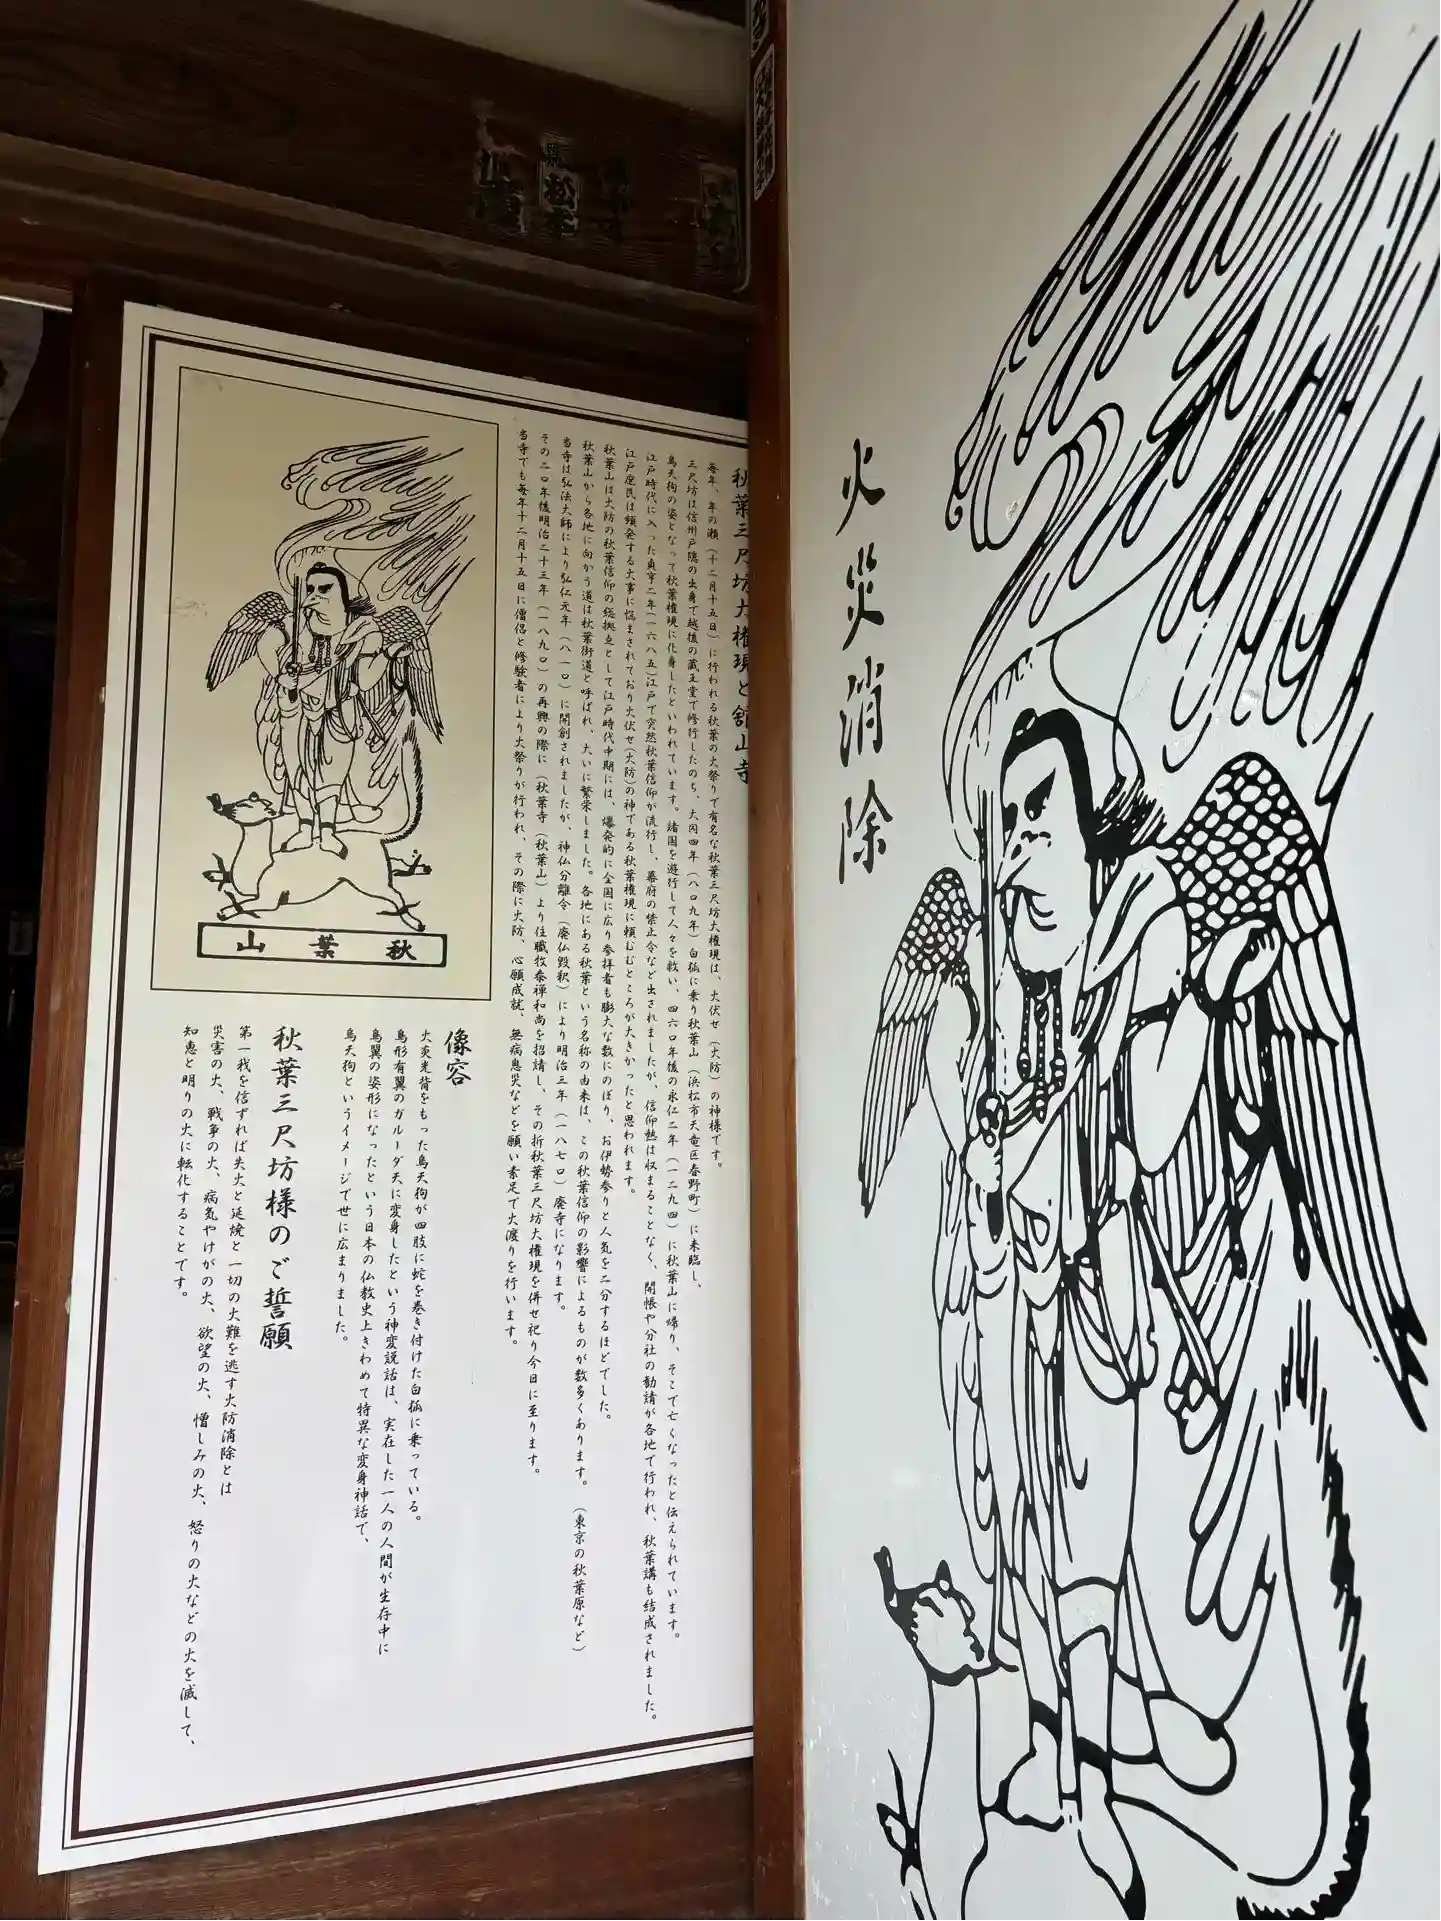 秋葉三尺坊大権現と舘山寺
毎年、年の瀬（十二月十五日）に行われる秋葉の火祭りで有名な秋葉三尺坊大権現は、火伏せ（火防）の神様です。
三尺坊は信州戸隠の出身で越後の蔵王堂で修行したのち、大同四年（八〇九年）白狐に乗り秋葉山（浜松市天竜区春野町）に来臨し、
烏天狗の姿となって秋葉権現に化身したといわれています。諸国を遊行して人々を救い、四六〇年後の永仁二年（一二九四）に秋葉山に帰り、そこで亡くなったと伝えられています。
江戸時代に入った貞亨二年（一六八五）江戸で突然秋葉信仰が流行し、幕府の禁止令など出されましたが、信仰熱は収まることなく、開帳や分社の勧請が各地で行われ、秋葉講も結成されました。
江戸庶民は頻発する火事に悩まされており火伏せ（火防）の神である秋葉権現に頼むむところが大きかったと思われます。
秋葉山は火防の秋葉信仰の総拠点として江戸時代中期には、爆発的に全国に広り参拝者も膨大な数にのぼり、お伊勢参りと人気を二分するほどでした。
秋葉山から各地に向かう道は秋葉街道と呼ばれ、大いに繁栄しました。各地にある秋葉という名称の由来は、この秋葉信仰の影響によるものが数多くあります。（東京の秋葉原など）
当寺は弘法大師により弘仁元年（八一〇）に開創されましたが、神仏分離令（廃仏毀釈）により明治三年（一八七〇）廃寺になります。
その二〇年後明治二十三年（一八九〇）の再興の際に（秋葉寺（秋葉山）より住職牧泰禅和尚を招請し、その折秋葉三尺坊大権現を併せ祀り今日に至ります。
当寺でも毎年十二月十五日に僧侶と修験者により火祭りが行われ、その際に火防、心願成就、無病息災などを願い素足で火渡りを行います。
像容
火炎光背をもった烏天狗が四肢に蛇を巻き付けた白狐に乗っている。
鳥形有翼のガルーダ天に変身したという神変説話は、実在した一人の人間が生存中に
鳥翼の姿形になったという日本の仏教史上きわめて特異な変身神話で、
烏天狗というイメージで世に広まりました。
秋葉三尺坊様のご誓願
第一我を信ずれば失火と延焼と一切の火難を逃す火防消除とは
災害の火、戦争の火、病気やけがの火、欲望の火、憎しみの火、怒りの火などの火を滅して、
知恵と明りの火に転化することです。
山葉秋
火災消除
松本